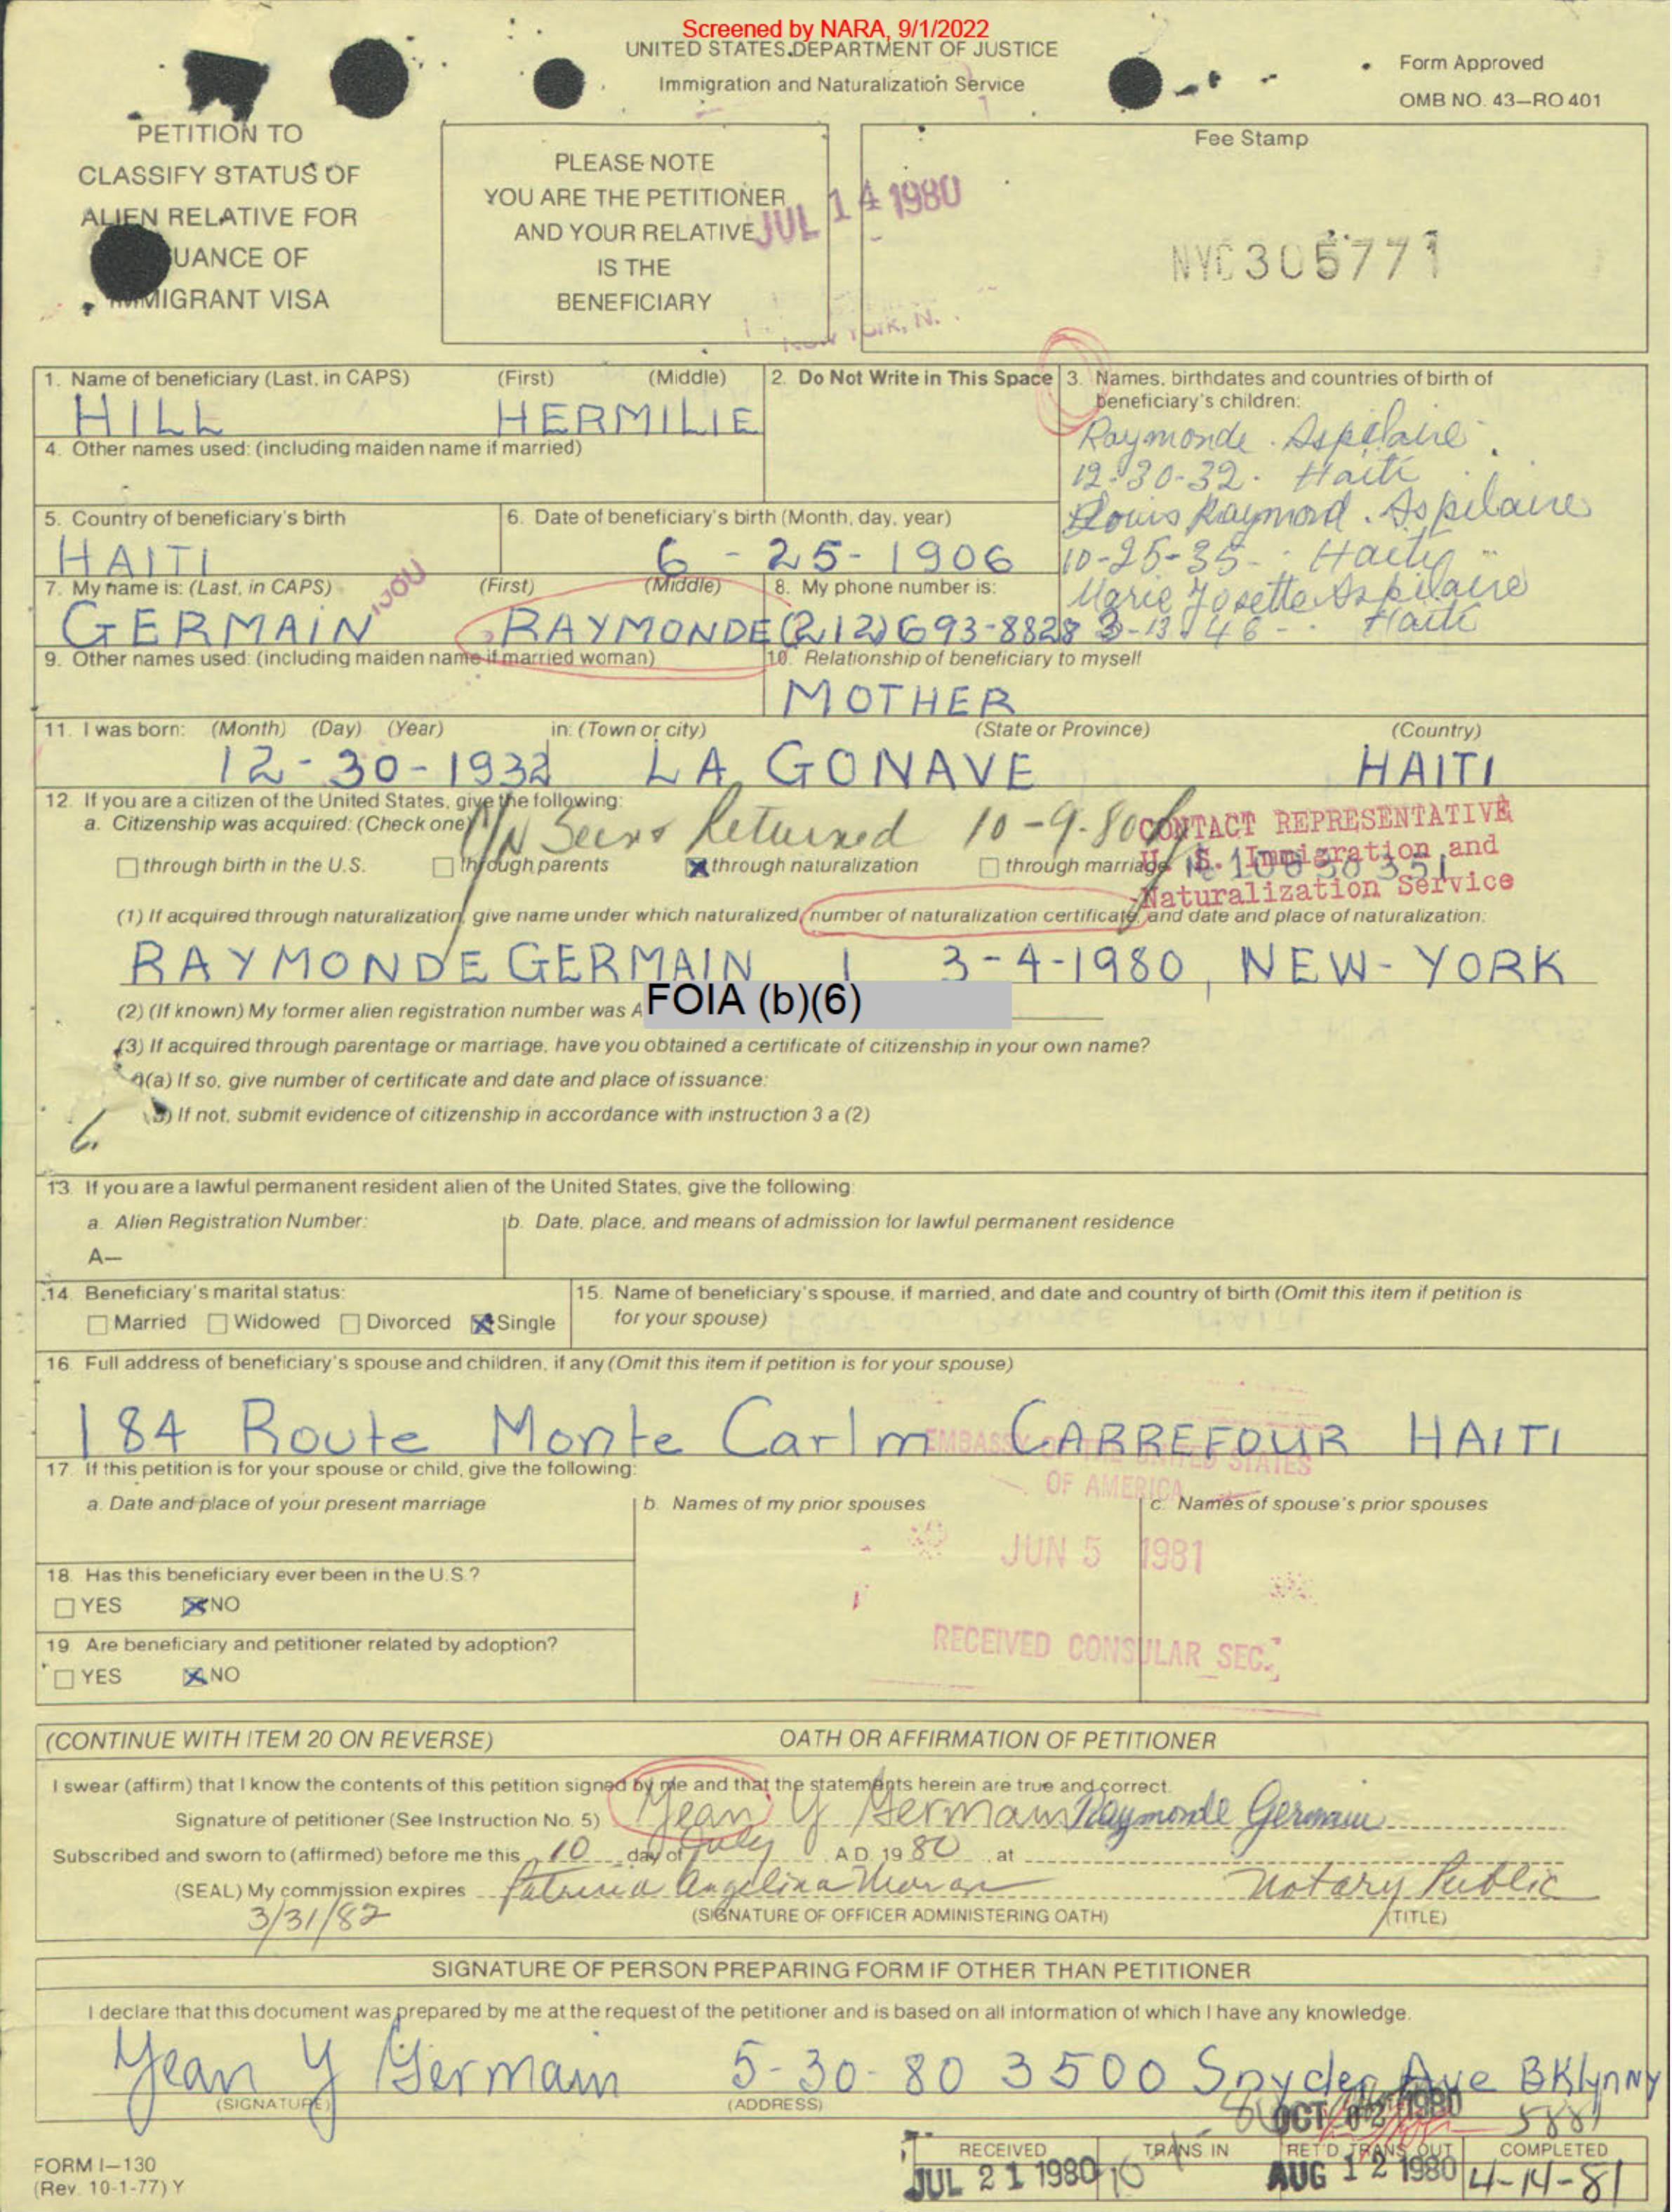 Screened by NARA, 9/1/2022
UNITED STATES DEPARTMENT OF JUSTICE
Immigration and Naturalization Service
Form Approved
OMB NO. 43—RO401
PETITION TO
CLASSIFY STATUS OF
ALIEN RELATIVE FOR
UANCE OF
IMMIGRANT VISA
PLEASE NOTE
YOU ARE THE PETITIONER
AND YOUR RELATIVE
IS THE
BENEFICIARY
JUL 14 1980
Fee Stamp
NYC 305771
1. Name of beneficiary (Last, in CAPS) (First) (Middle)
HILL HERMILIE
2. Do Not Write in This Space
3. Names, birthdates and countries of birth of
beneficiary's children:
Raymonde Aspilaire
12-30-32 Haiti
Louis Raymond Aspilaire
10-25-35 Haity
Marie Josette Aspilaire
3-13-46 Haiti
4. Other names used: (including maiden name if married)
5. Country of beneficiary's birth
HAITI
6. Date of beneficiary's birth (Month, day, year)
6 - 25 - 1906
7. My name is: (Last, in CAPS) (First) (Middle)
GERMAIN RAYMONDE
8. My phone number is:
(212) 693-8828
9. Other names used: (including maiden name if married woman)
10. Relationship of beneficiary to myself
MOTHER
11. I was born: (Month) (Day) (Year) in: (Town or city) (State or Province) (Country)
12-30-1932 LA GONAVE HAITI
12. If you are a citizen of the United States, give the following:
a. Citizenship was acquired: (Check one)
Returned 10-9-80
CONTACT REPRESENTATIVE
U. S. Immigration and
Naturalization Service
through birth in the U.S. through parents through naturalization through marriage
(1) If acquired through naturalization, give name under which naturalized, number of naturalization certificate, and date and place of naturalization:
RAYMONDE GERMAIN 3-4-1980, NEW-YORK
(2) (If known) My former alien registration number was A
FOIA (b)(6)
(3) If acquired through parentage or marriage, have you obtained a certificate of citizenship in your own name?
(a) If so, give number of certificate and date and place of issuance:
If not, submit evidence of citizenship in accordance with instruction 3 a (2)
13. If you are a lawful permanent resident alien of the United States, give the following:
a. Alien Registration Number:
A—
b. Date, place, and means of admission for lawful permanent residence
14. Beneficiary's marital status:
Married Widowed Divorced Single
15. Name of beneficiary's spouse, if married, and date and country of birth (Omit this item if petition is
for your spouse)
16. Full address of beneficiary's spouse and children, if any (Omit this item if petition is for your spouse)
184 Route Monte Carlm CARREFOUR HAITI
EMBASSY OF THE UNITED STATES
OF AMERICA
JUN 5 1981
RECEIVED CONSULAR SEC.
17. If this petition is for your spouse or child, give the following:
a. Date and place of your present marriage
b. Names of my prior spouses
c. Names of spouse's prior spouses
18. Has this beneficiary ever been in the U.S.?
YES NO
19. Are beneficiary and petitioner related by adoption?
YES NO
(CONTINUE WITH ITEM 20 ON REVERSE) OATH OR AFFIRMATION OF PETITIONER
I swear (affirm) that I know the contents of this petition signed by me and that the statements herein are true and correct.
Signature of petitioner (See Instruction No. 5) Yean Y Germain Raymonde Germain
Subscribed and sworn to (affirmed) before me this 10 day of July A.D. 19 80 at
(SEAL) My commission expires Patricia Angelina Moran Notary Public
3/31/82
(SIGNATURE OF OFFICER ADMINISTERING OATH) (TITLE)
SIGNATURE OF PERSON PREPARING FORM IF OTHER THAN PETITIONER
I declare that this document was prepared by me at the request of the petitioner and is based on all information of which I have any knowledge.
Yean Y Germain 5-30-80 3500 Snyder Ave BKlyn NY
(SIGNATURE) (ADDRESS)
OCT 02 1980
FORM I—130
(Rev. 10-1-77) Y
RECEIVED TRANS IN RET'D TRANS OUT COMPLETED
JUL 21 1980 AUG 12 1980 4-14-81